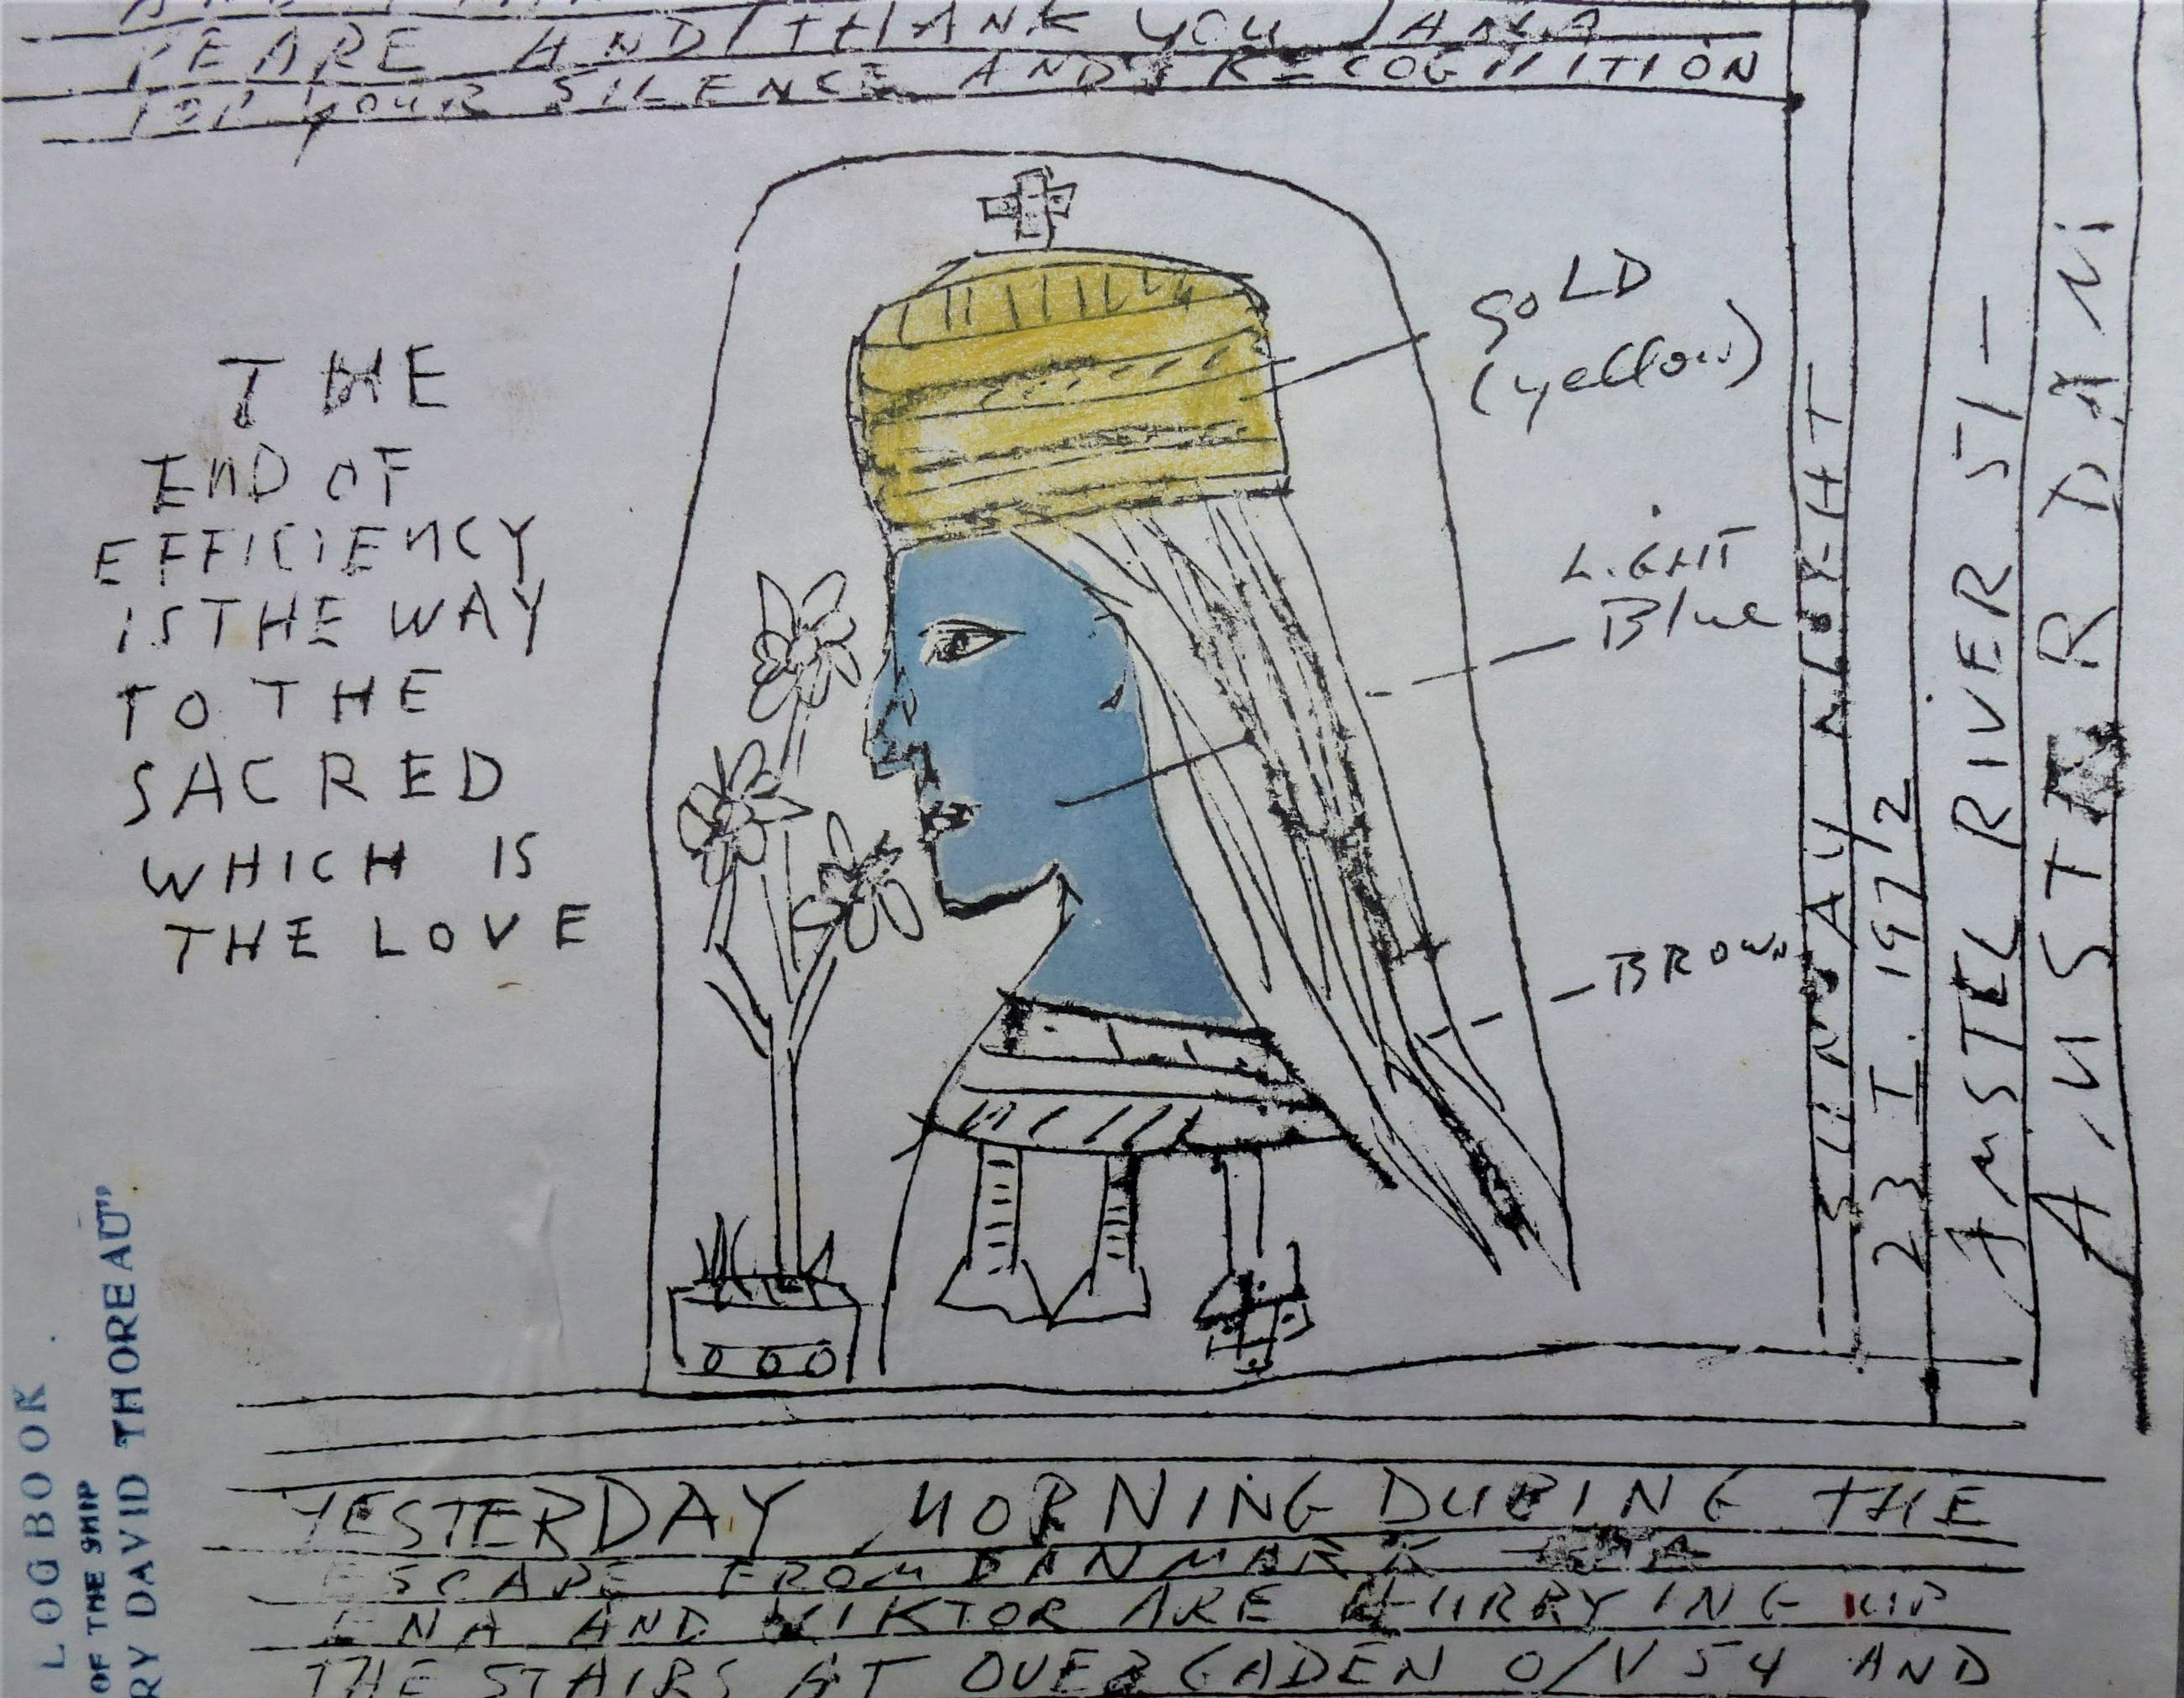 PEARE AND THANK YOU JANA
FOR YOUR SILENCE AND RECOGNITION
THE
END OF
EFFICIENCY
IS THE WAY
TO THE
SACRED
WHICH IS
THE LOVE
GOLD
(yellow)
LIGHT
Blue
BROWN
SUNDAY NIGHT
23 I. 1972
AMSTEL RIVER 51-
AMSTERDAM
LOGBOOK
OF THE SHIP
RY DAVID THOREAU"
YESTERDAY MORNING DURING THE
ESCAPE FROM DANMARK
ENA AND WIKTOR ARE HURRYING UP
THE STAIRS AT OVERGADEN O/V 54 AND